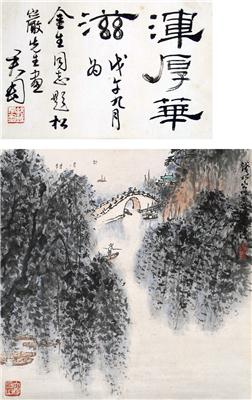 渾厚華
滋
戊午九月
为
金生同志题松
巖先生画